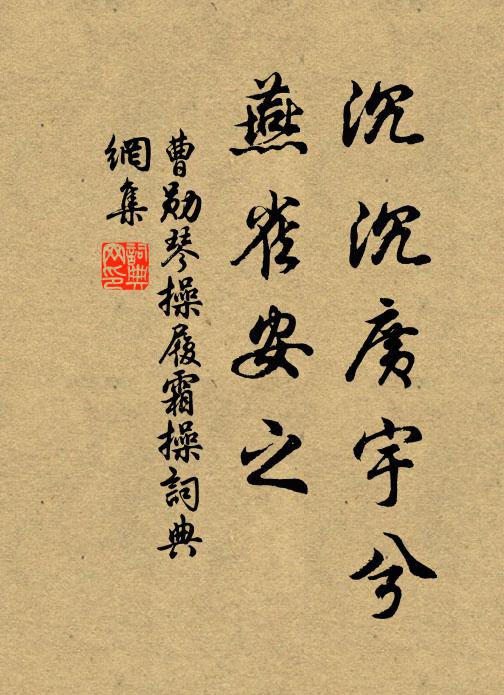 沉沉廣宇兮
燕雀安之
曹勛琴操履霜操詞典
網集
詞典網印